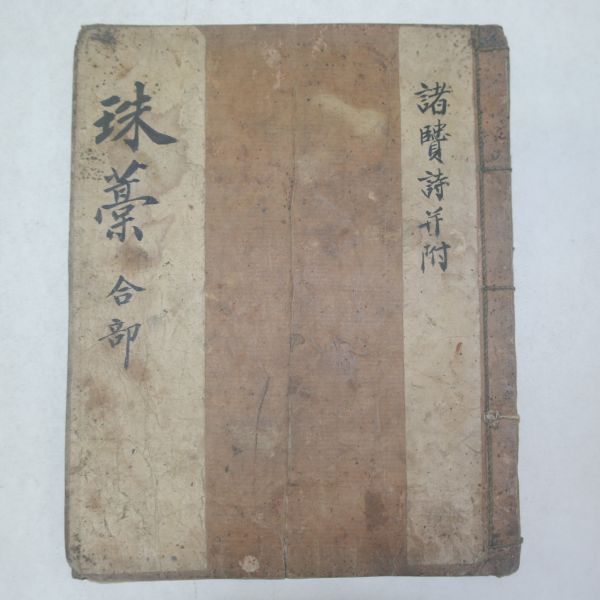 諸賢詩并附
珠藁 合部